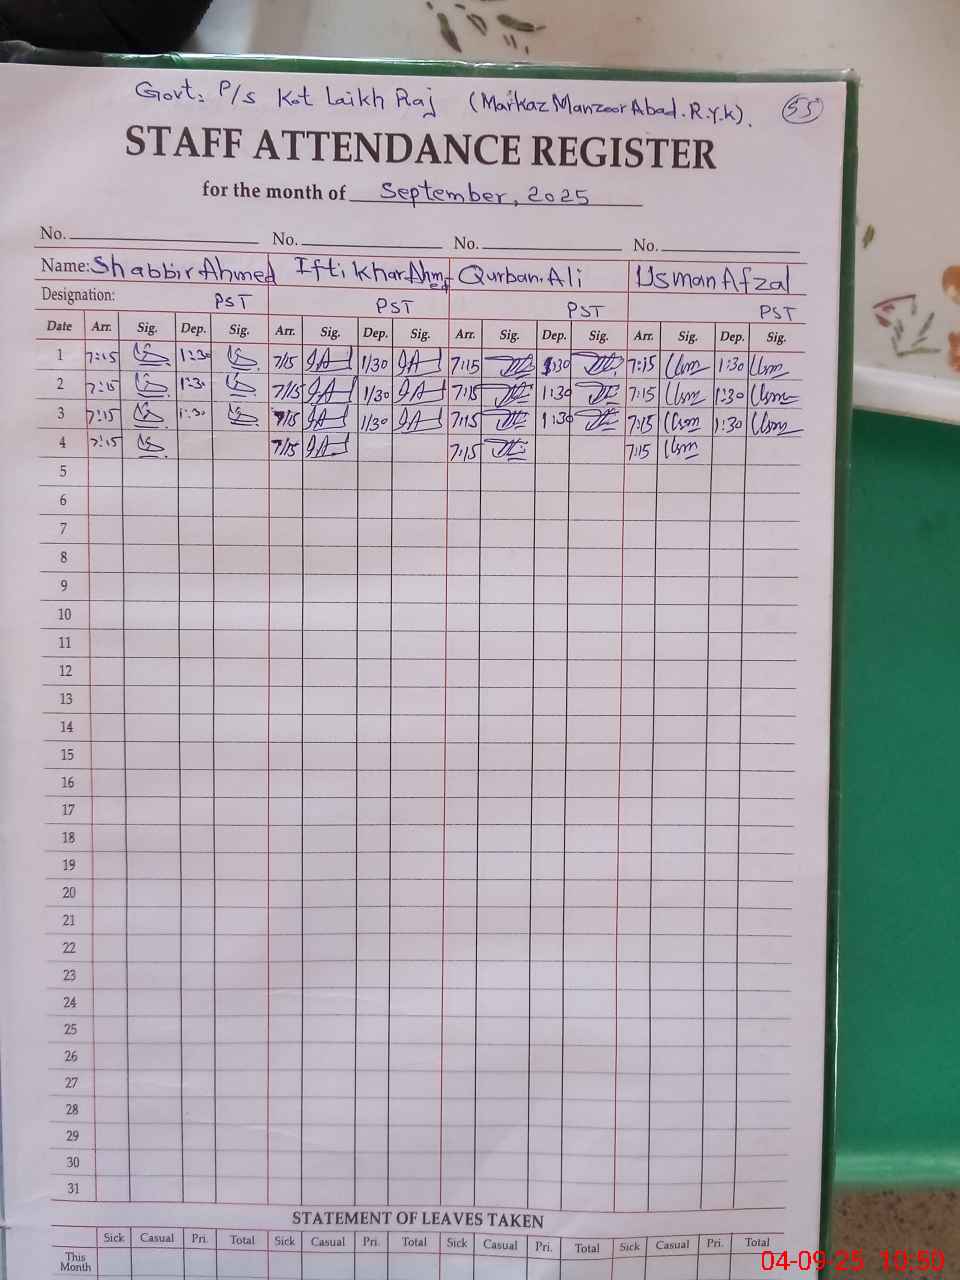 Govt: P/s Kot Laikh Raj (Markaz Manzoor Abad. R.Y.K). 55
STAFF ATTENDANCE REGISTER
for the month of September, 2025
No. No. No. No.
Name: Shabbir Ahmed Iftikhar Ahmed Qurban Ali Usman Afzal
Designation: PST PST PST PST
Date Arr. Sig. Dep. Sig. Arr. Sig. Dep. Sig. Arr. Sig. Dep. Sig. Arr. Sig. Dep. Sig.
1 7:15 1:30 7/15 IA 1/30 IA 7:15 1:30 7:15 Usm 1:30 Usm
2 7:15 1:30 7/15 IA 1/30 IA 7:15 1:30 7:15 Usm 1:30 Usm
3 7:15 1:30 7/15 IA 1/30 IA 7:15 1:30 7:15 Usm 1:30 Usm
4 7:15 7/15 IA 7:15 7:15 Usm
5
6
7
8
9
10
11
12
13
14
15
16
17
18
19
20
21
22
23
24
25
26
27
28
29
30
31
STATEMENT OF LEAVES TAKEN
Sick Casual Pri. Total Sick Casual Pri. Total Sick Casual Pri. Total Sick Casual Pri. Total
This
Month
04-09-25 10:50